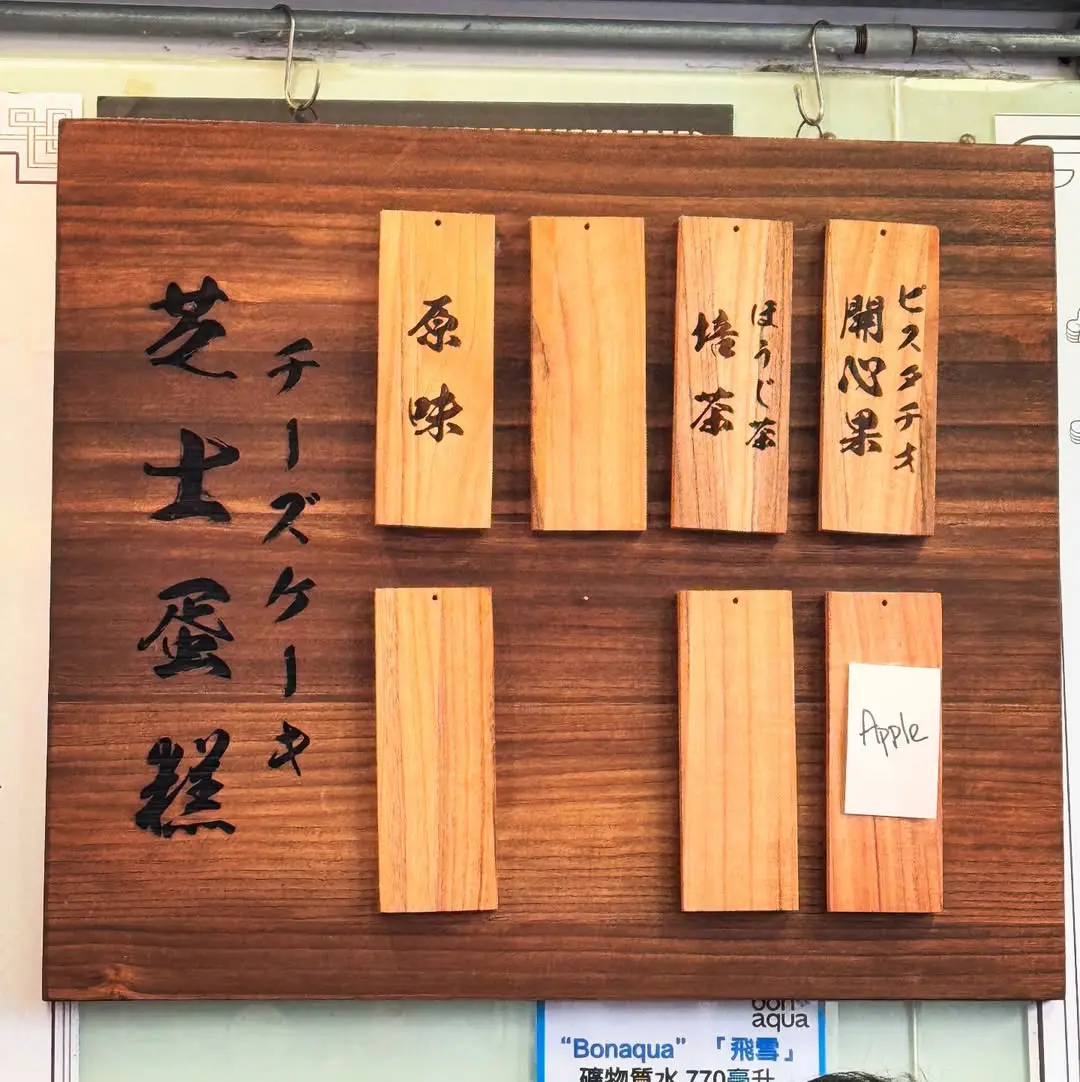 芝士蛋糕
チーズケーキ
原味
培茶
ほうじ茶
開心果
ピスタチオ
Apple
bon
aqua
“Bonaqua” 「飛雪」
礦物質水 770毫升